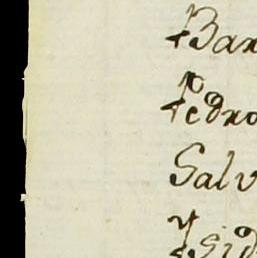 Bar
Pedro
Salv
Ysid